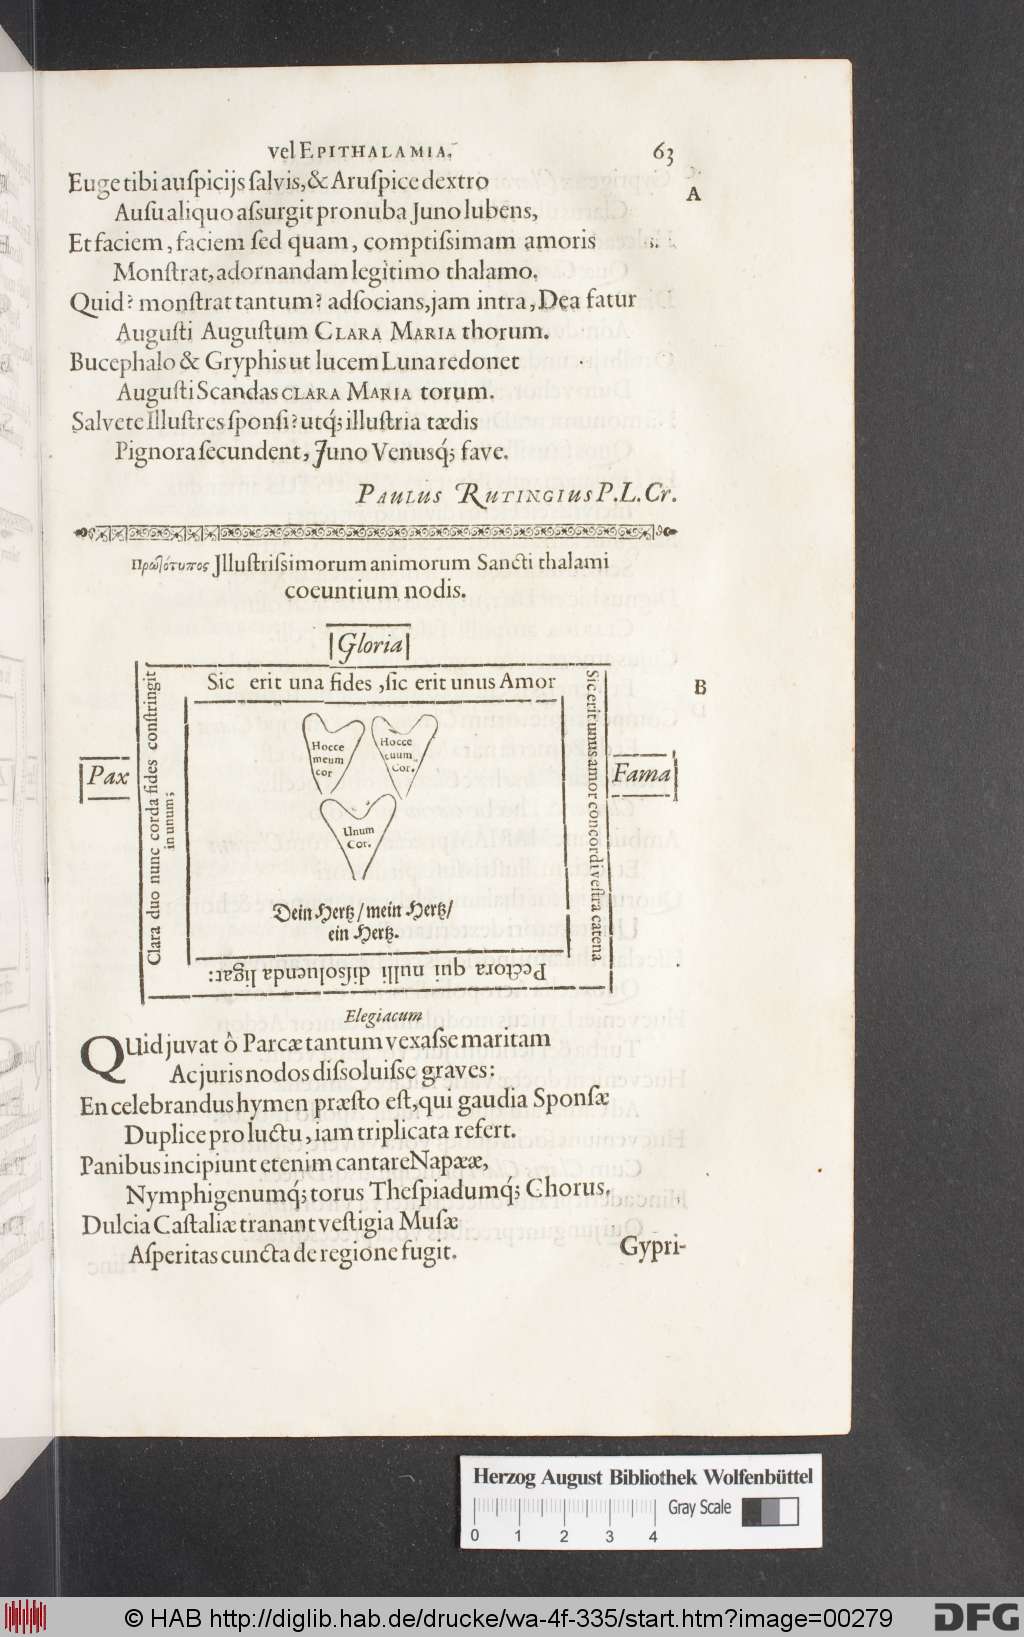 vel EPITHALAMIA. 63
Euge tibi auſpicijs ſalvis, & Aruſpice dextro
A
Auſu aliquo aſsurgit pronuba Juno lubens,
Et faciem, faciem ſed quam, comptiſsimam amoris
Monſtrat, adornandam legìtimo thalamo.
Quid? monſtrat tantum? adſocians, jam intra, Dea fatur
Auguſti Auguſtum CLARA MARIA thorum.
Bucephalo & Gryphis ut lucem Luna redonet
Auguſti Scandas CLARA MARIA torum.
Salvete Illuſtres ſponſi? utq́; illuſtria tædis
Pignora ſecundent, Juno Venusq́; fave.
PAULUS RUTINGIUS P. L. Cr.
Πρωτότυπος Jlluſtriſsimorum animorum Sancti thalami
coeuntium nodis.
Gloria
Sic erit una fides, ſic erit unus Amor
B
Clara duo nunc corda fides conſtringit
in unum;
Pax
Hocce
meum
cor
Hocce
tuum
Cor.
Unum
Cor.
Fama
Sic erit unus amor concordi veſtra catena
Dein Hertz / mein Hertz /
ein Hertz.
Pectora qui nulli diſsolvenda ligat:
Elegiacum
QUid juvat ô Parcæ tantum vexaſse maritam
Ac juris nodos diſsoluiſse graves:
En celebrandus hymen præſto eſt, qui gaudia Sponſæ
Duplice pro luctu, iam triplicata refert.
Panibus incipiunt etenim cantare Napææ,
Nymphigenumq́; torus Theſpiadumq́; Chorus,
Dulcia Caſtaliæ tranant veſtigia Muſæ
Aſperitas cuncta de regione fugit.
Gypri-
Herzog August Bibliothek Wolfenbüttel
Gray Scale
0 1 2 3 4
© HAB http://diglib.hab.de/drucke/wa-4f-335/start.htm?image=00279
DFG